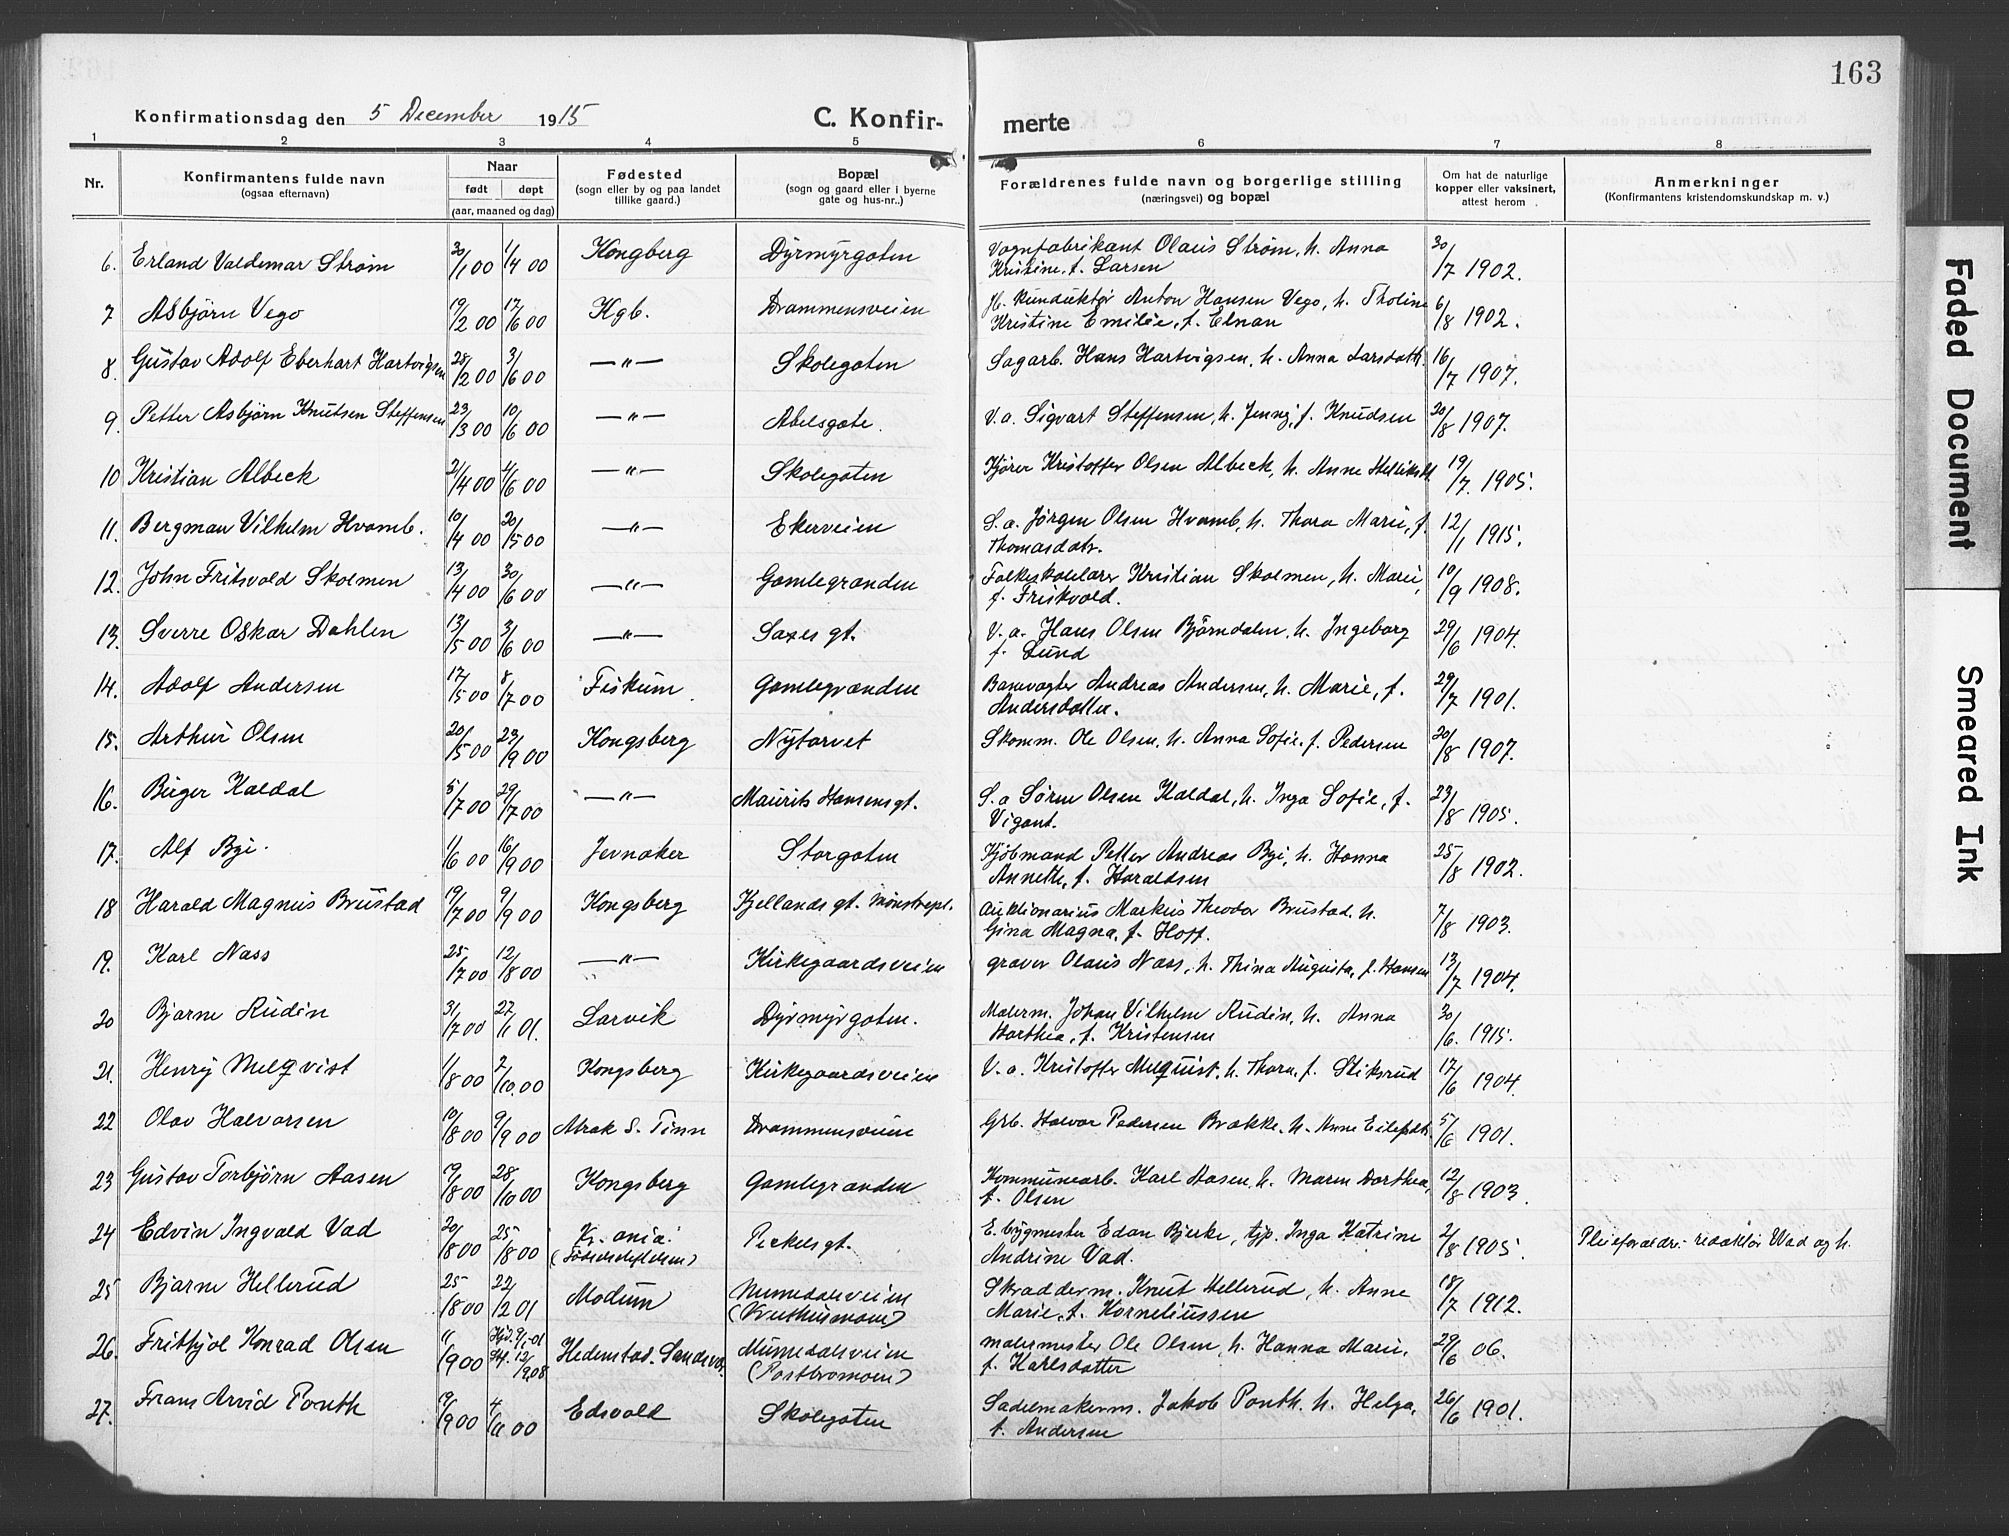 163
Konfirmationsdag den 5 December 1915 C. Konfir- merte
1 2 3 4 5 6 7 8
Nr. Konfirmantens fulde navn (ogsaa efternavn) Naar født døpt (aar, maaned og dag) Fødested (sogn eller by og paa landet tillike gaard.) Bopæl (sogn og gaard eller i byerne gate og hus-nr..) Forældrenes fulde navn og borgerlige stilling (næringsvei) og bopæl Om hat de naturlige kopper eller vaksinert, attest herom Anmerkninger (Konfirmantens kristendomskundskap m. v.)
6. Erland Valdemar Strøm 30/1 00 1/4 00 Kongberg Dyrmyrgaten Vognfabrikant Olaus Strøm, h. Anna 30/7 1902.
Kristine, f. Larsen
7 Asbjørn Vego 19/2 00 17/6 00 Kgb. Drammensveien Jb. kunduktør Anton Hansen Vego, h. Tholine 6/8 1902.
Kristine Emilie, f. Elnan
8. Gustav Adolf Eberhart Hartvigsen 28/2 00 3/6 00 —"— Skolegaten Sagarb. Hans Hartvigsen, h. Anna Larsdatt. 16/7 1907.
9. Petter Asbjørn Knutsen Steffensen 23/3 00 10/6 00 —"— Abelsgate. V.a. Sigvart Steffensen, h. Jenny, f. Knudsen 20/8 1907.
10 Kristian Albeck 2/4 00 4/6 00 —"— Skolegaten Kjører Kristoffer Olsen Albeck, h. Anne Helliksd. 19/7. 1905.
11. Bergman Vilhelm Hvamb. 10/4 00 20/5 00 —"— Ekerveien S.a. Jørgen Olsen Hvamb, h. Thora Marie, f. 12/1 1915.
Thomasdatr.
12. John Fritsvold Skolmen 13/4 00 30/6 00 —"— Gamlegrænden Folkeskolelærer Kristian Skolmen, h. Marie, 10/9 1908.
f. Friskvold.
13. Sverre Oskar Dahlen 13/5 00 3/6 00 —"— Saxes gt. V.a. Hans Olsen Bjørndalen, h. Ingeborg 29/6 1904.
f. Lund
14. Adolf Andersen 17/5 00 8/7 00 Fiskum Gamlegrænden Banevogter Andreas Andersen, h. Marie, f. 29/7 1901.
Andersdatter.
15. Arthur Olsen 20/5 00 23/9 00 Kongsberg Nytorvet Skomm. Ole Olsen, h. Anna Sofie, f. Pedersen 20/8 1907.
16. Birger Kaldal 5/7 00 29/7 00 —"— Maurits Hansensgt. S.a Søren Olsen Kaldal, h. Inga Sofie, f. 23/8 1905.
Vigant.
17. Alf Bye. 1/6 00 16/9 00 Jevnaker Storgaten Kjøbmand Petter Andreas Bye, h. Hanna 25/8 1902.
Annette, f. Haraldsen
18 Harald Magnus Brustad 19/7 00 9/9 00 Kongsberg Kjellands gt. Auktionarius Markus Theodor Brustad, h. 7/8 1903.
Gina Magna, f. Hoff.
19. Karl Næss 25/7 00 12/8 00 —"— Kirkegaardsveien graver Olaus Næss, h. Thina Augusta, f. Hansen 13/7 1904.
20 Bjarne Rudin 31/7 00 27/1 01. Larvik Dyrmyrgaten. Malerm. Johan Vilhelm Rudin, h. Anna 30/6. 1915.
Harthea, f. Kristensen
21. Henry Melqvist 1/8 00 2/10.00 Kongsberg Kirkegaardsveien V.a. Kristoffer Melquist, h. Thora, f. Stiksrud 17/6 1904.
22 Olav Halvorsen 10/8 00 9/9 00 Atrak S. Tinn Drammensveien Grb. Halvor Pedersen Brække, h. Anne Eilefsdt. 5/6 1901.
23 Gustav Torbjørn Aasen 19/8 00 28/10 00 Kongsberg Gamlegrænden Kommunearb. Karl Aasen, h. Maren Dorthea, 12/8 1903
f. Olsen
24 Edvin Ingvald Vad 20/8 00 25/8 00 Kr.ania. Peckelsgt. E. bygmester Edan Bjerke, tjp. Inga Katrine 2/8 1905. Pleieforældre: redaktør Wad og h.
(Fødselsstiftelsen) Andrine Vad.
25 Bjarne Hellerud 25/8 00 22/2 01 Modum Numedalsveien Skrædderm. Knut Hellerud, h. Anne 18/7 1912.
(Kruthusmoen) Marie, f. Korneliussen
26. Frithjol Konrad Olsen 11/9 00 Hjd. 9/1-01 Hedenstad. Sandsv. Numedalsveien malermester Ole Olsen, h. Hanna Marie, 29/6 06.
St. 12/9 08 (Postbromoen) f. Karlsdatter
27. Frans Arvid Ponth 19/9 00 4/11 00 Edsvold Skolegaten Sadelmakerm. Jakob Ponth, h. Helga, 26/6 1901.
f. Andersen
Faded Document
Smeared Ink